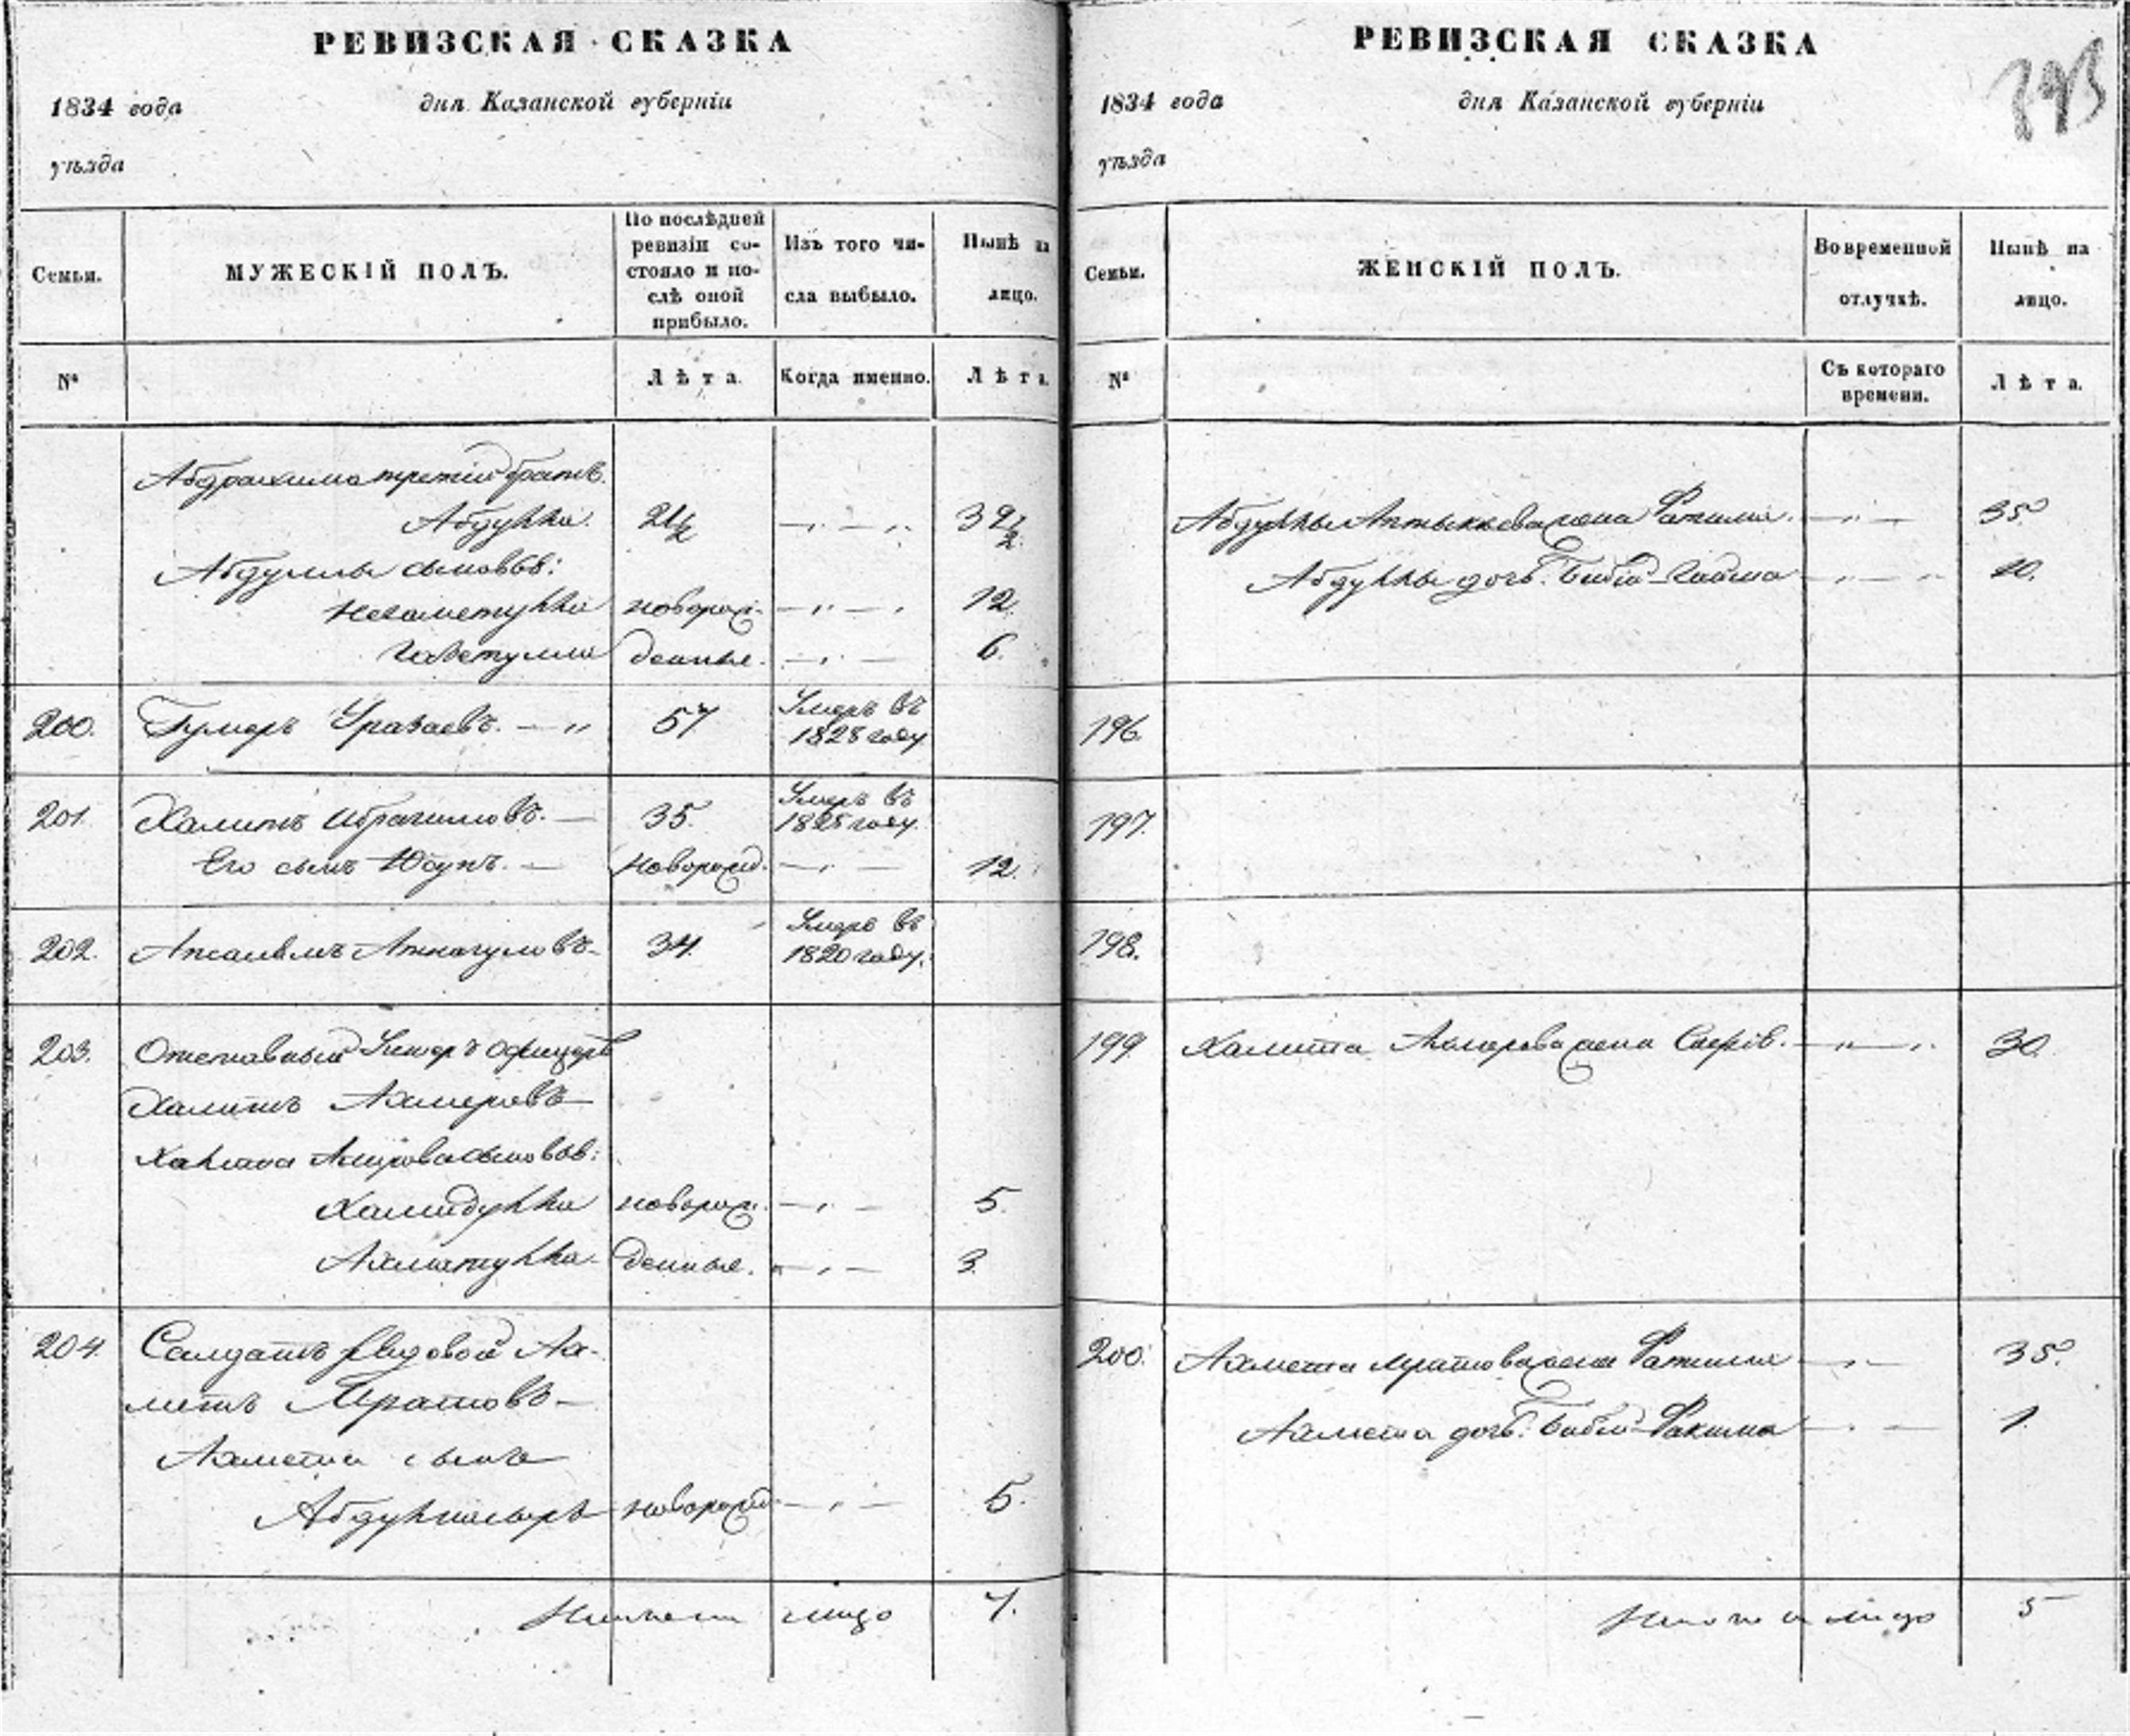 РЕВИЗСКАЯ СКАЗКА
1834 года
дня Казанской губерніи
уѣзда
Семьи.
МУЖЕСКІЙ ПОЛЪ.
По послѣдней
ревизіи со-
стояло и по-
слѣ оной
прибыло.
Изъ того чи-
сла выбыло.
Нынѣ на
лицо.
№
Лѣта.
Когда именно.
Лѣта.
Абдрахима третій братъ
Абдулла 21½ 39½
Абдуллы сыновья:
Негаметулла новорож- 12.
денные. 6.
200. Гумеръ Уразаевъ. 57 Умеръ въ
1828 году
201. Халитъ Ибрагимовъ. 35. Умеръ въ
1825 году.
Его сынъ Юсупъ. новорожд. 12.
202. 34. Умеръ въ
1820 году.
203. Отставный Унтеръ офицеръ
Халитъ Амеровъ
Халита сыновья:
Хамидулла новорож- 5.
Ахматулла денные. 3.
204. Салдатъ рядовой Ах-
метъ Муратовъ
Ахмета сынъ
новорожд 5.
Ныне на лицо 7.
РЕВИЗСКАЯ СКАЗКА
393
1834 года
дня Казанской губерніи
уѣзда
Семьи.
ЖЕНСКІЙ ПОЛЪ.
Во временной
отлучкѣ.
Нынѣ на
лицо.
№
Съ котораго
времени.
Лѣта.
Абдуллы жена Фатима. 35
Абдуллы дочь: Биби 10.
196.
197.
198.
199. Халита жена 30.
200. Ахмета Муратова жена Фатима 35.
Ахмета дочь: Биби Факима 1.
Ныне на лицо 5